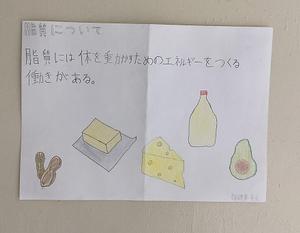 脂質について
脂質には体を動かすためのエネルギーをつくる
働きがある。